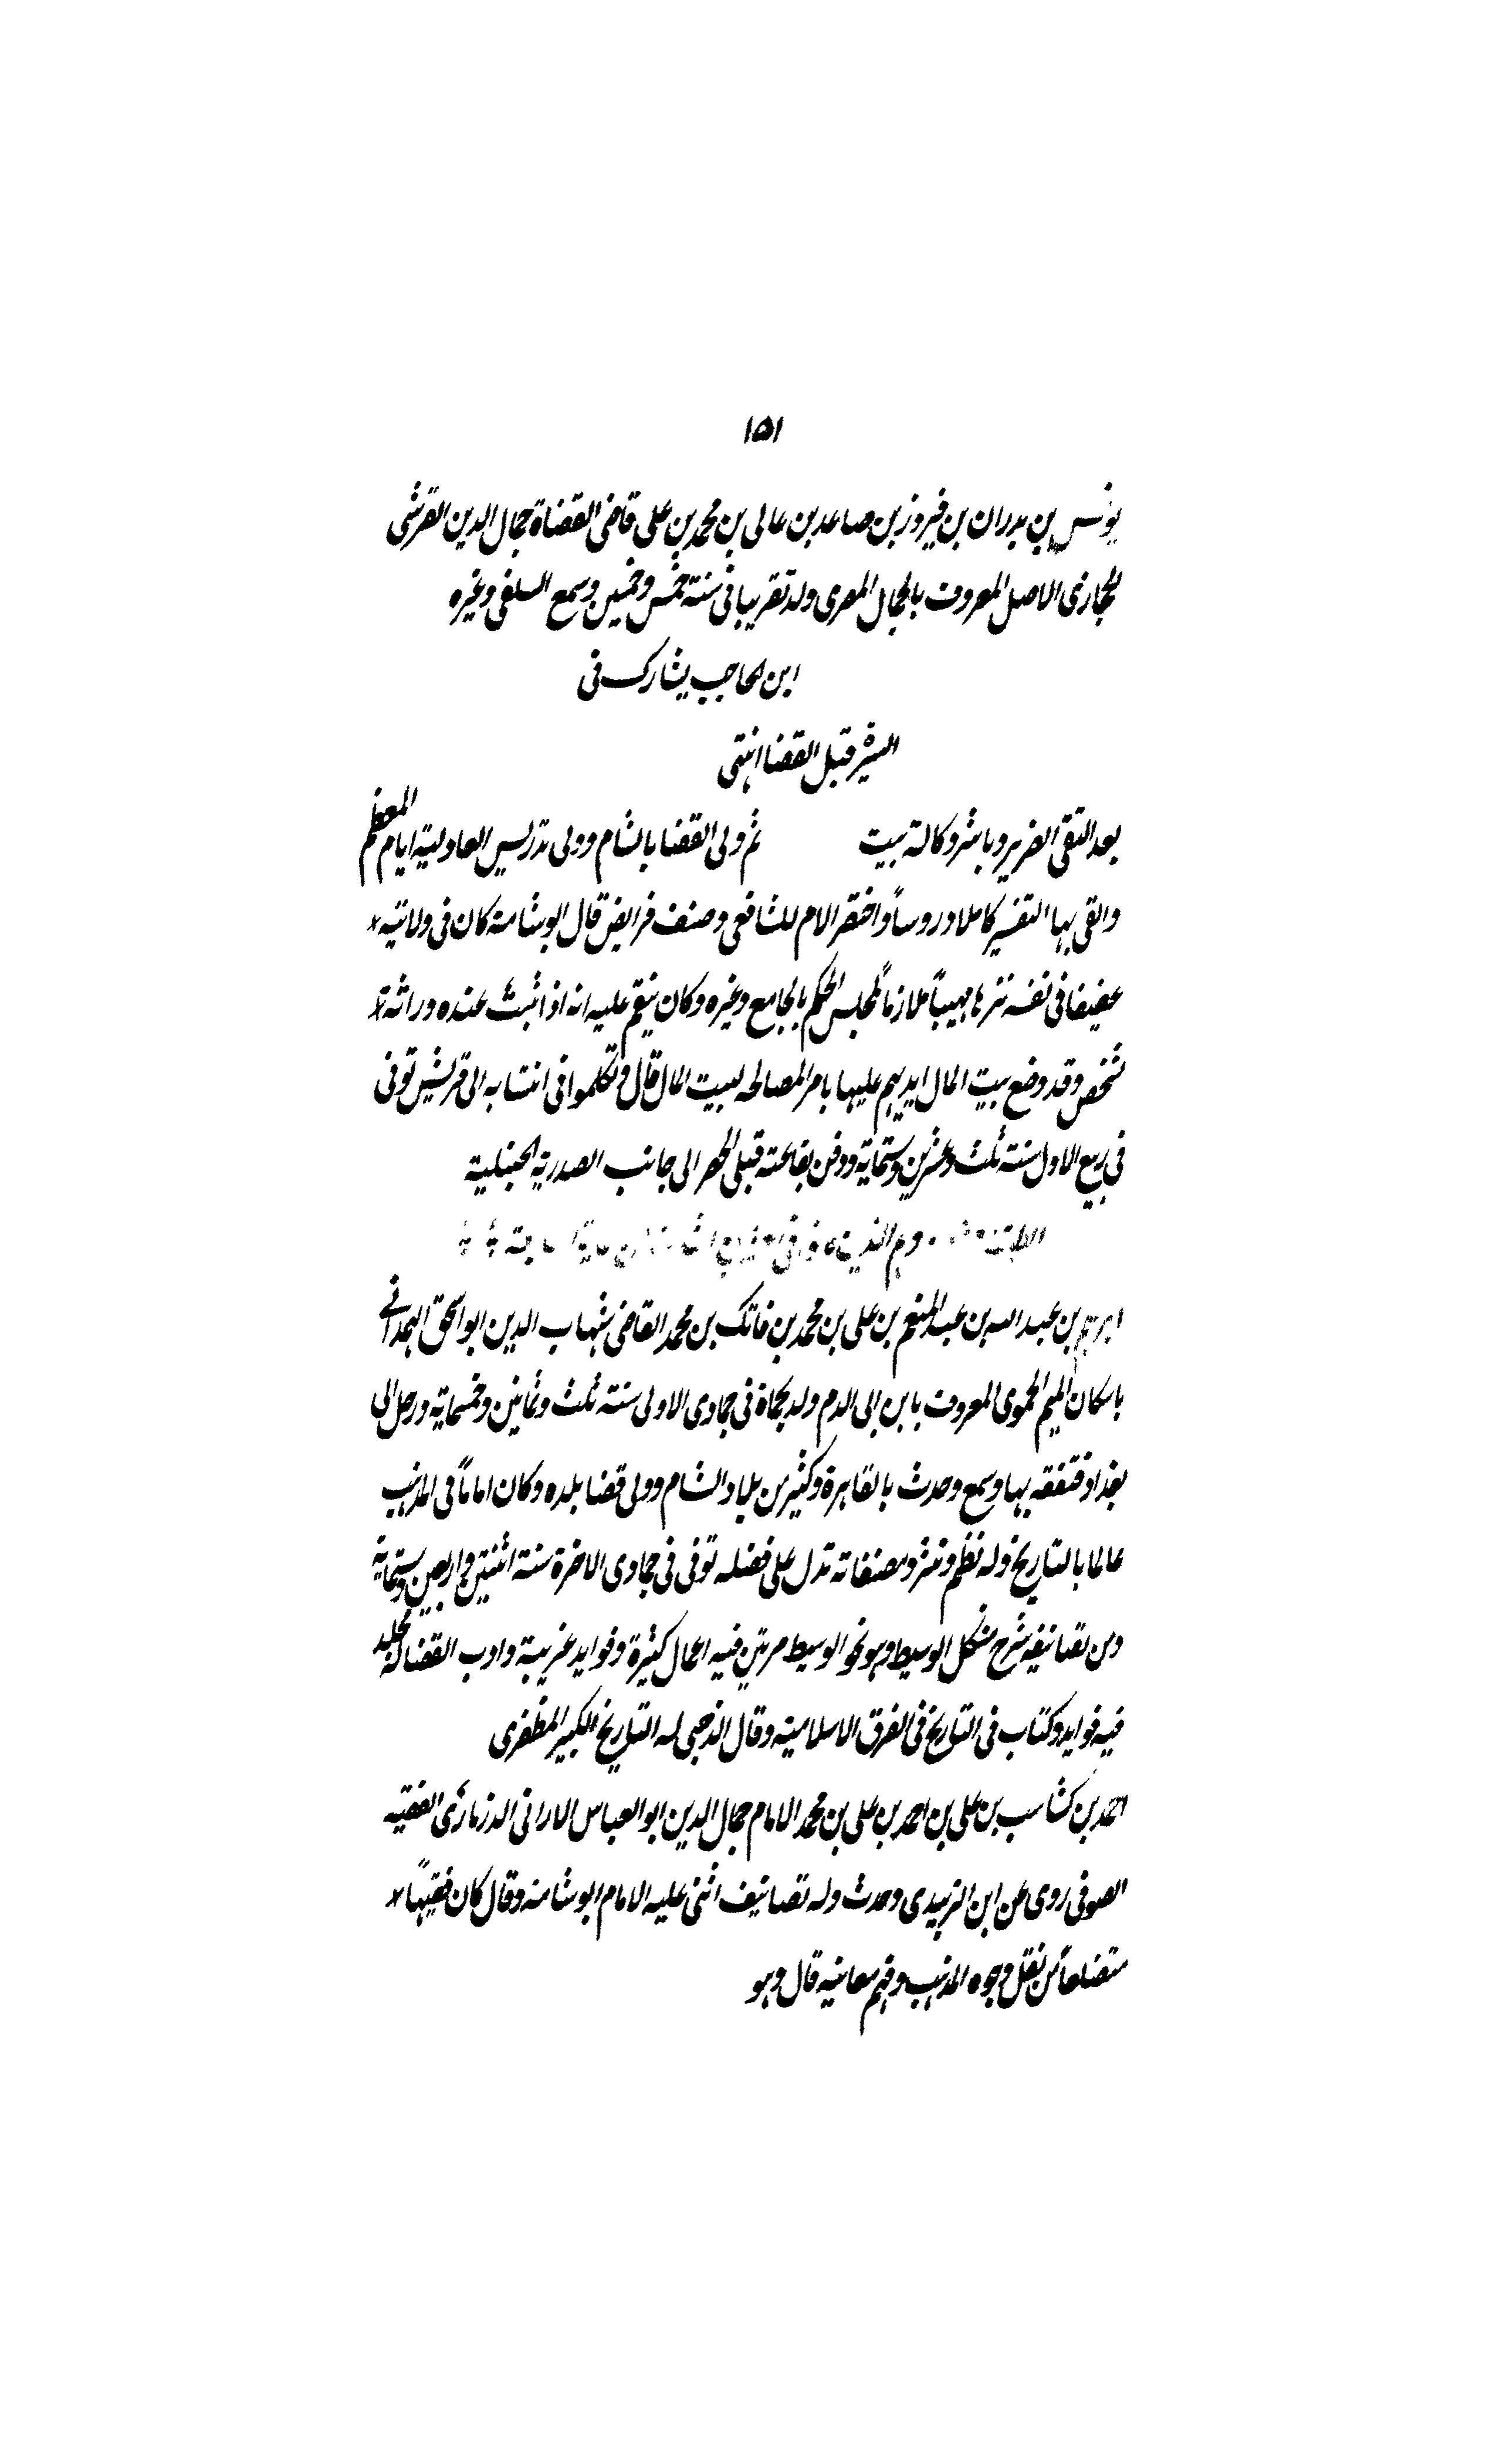 ١٥١
يونس بن بدران بن فيروز بن صاعد بن عالى بن محمد بن على قاضى القضاة جمال الدين القرشى
الحجازى الاصل المعروف بالجمال المصرى ولد تقريبا فى سنة خمس وخمسين وسمع السلفى وغيره
ابن الحاجب يشارك فى
السير قبل القضا انتهى
بعد التقى الضرير وباشر وكالة بيت ثم ولى القضا بالشام وولى تدريس العادلية ايام المعظم
والقى بها التفسير كاملا دروساً واختصر الام للشافعى وصنف فرايض قال ابو شامة كان فى ولايته
عفيفا فى نفسه نزها مهيباً ملازماً لمجلس الحكم بالجامع وغيره وكان ينقم عليه انه اذا ثبت عنده وراثة
شخص وقد وضع بيت المال ايديهم عليها بامر المصالحه لبيت المال قال وتكلموا فى انتسابه الى قريش توفى
فى ربيع الاول سنة ثلث وعشرين وستماية ودفن بقاعته قبلى الخضر الى جانب الصدرية الحنبلية
الطبقة وهم الذين
ابرهيم بن عبد الله بن عبد المنعم بن على بن محمد بن فاتك بن محمد القاضى شهاب الدين ابو اسحق الهمدانے
باسكان الميم الحموى المعروف بابن ابى الدم ولد بحماة فى جمادى الاولى سنة ثلث وثمانين وخمسماية ورحل الى
بغداد فتفقه بها وسمع وحدث بالقاهرة وكثير من بلاد الشام وولى قضا بلده وكان اماماً فى المذهب
عالما بالتاريخ وله نظم ونثر ومصنفاته تدل على فضله توفى فى جمادى الاخرة سنة اثنتين واربعين وستماية
ومن تصانيفه شرح مشكل الوسيط وهو نحو الوسيط مرتين فيه اعمال كثيرة وفوايد غريبة وادب القضا له مجلد
فيه فوايد وكتاب فى التاريخ فى الفرق الاسلامية وقال الذهبى له التاريخ الكبير المظفرى
احمد بن كشاسب بن على بن احمد بن على بن محمد الامام جمال الدين ابو العباس الارانى الدزمارى الفقيه
الصوفى روى عن ابن الزبيدى وحدث وله تصانيف اثنى عليه الامام ابو شامة وقال كان فقيهاً
متضلعاً من نقل وجوه المذهب وفهم معانيه قال وهو